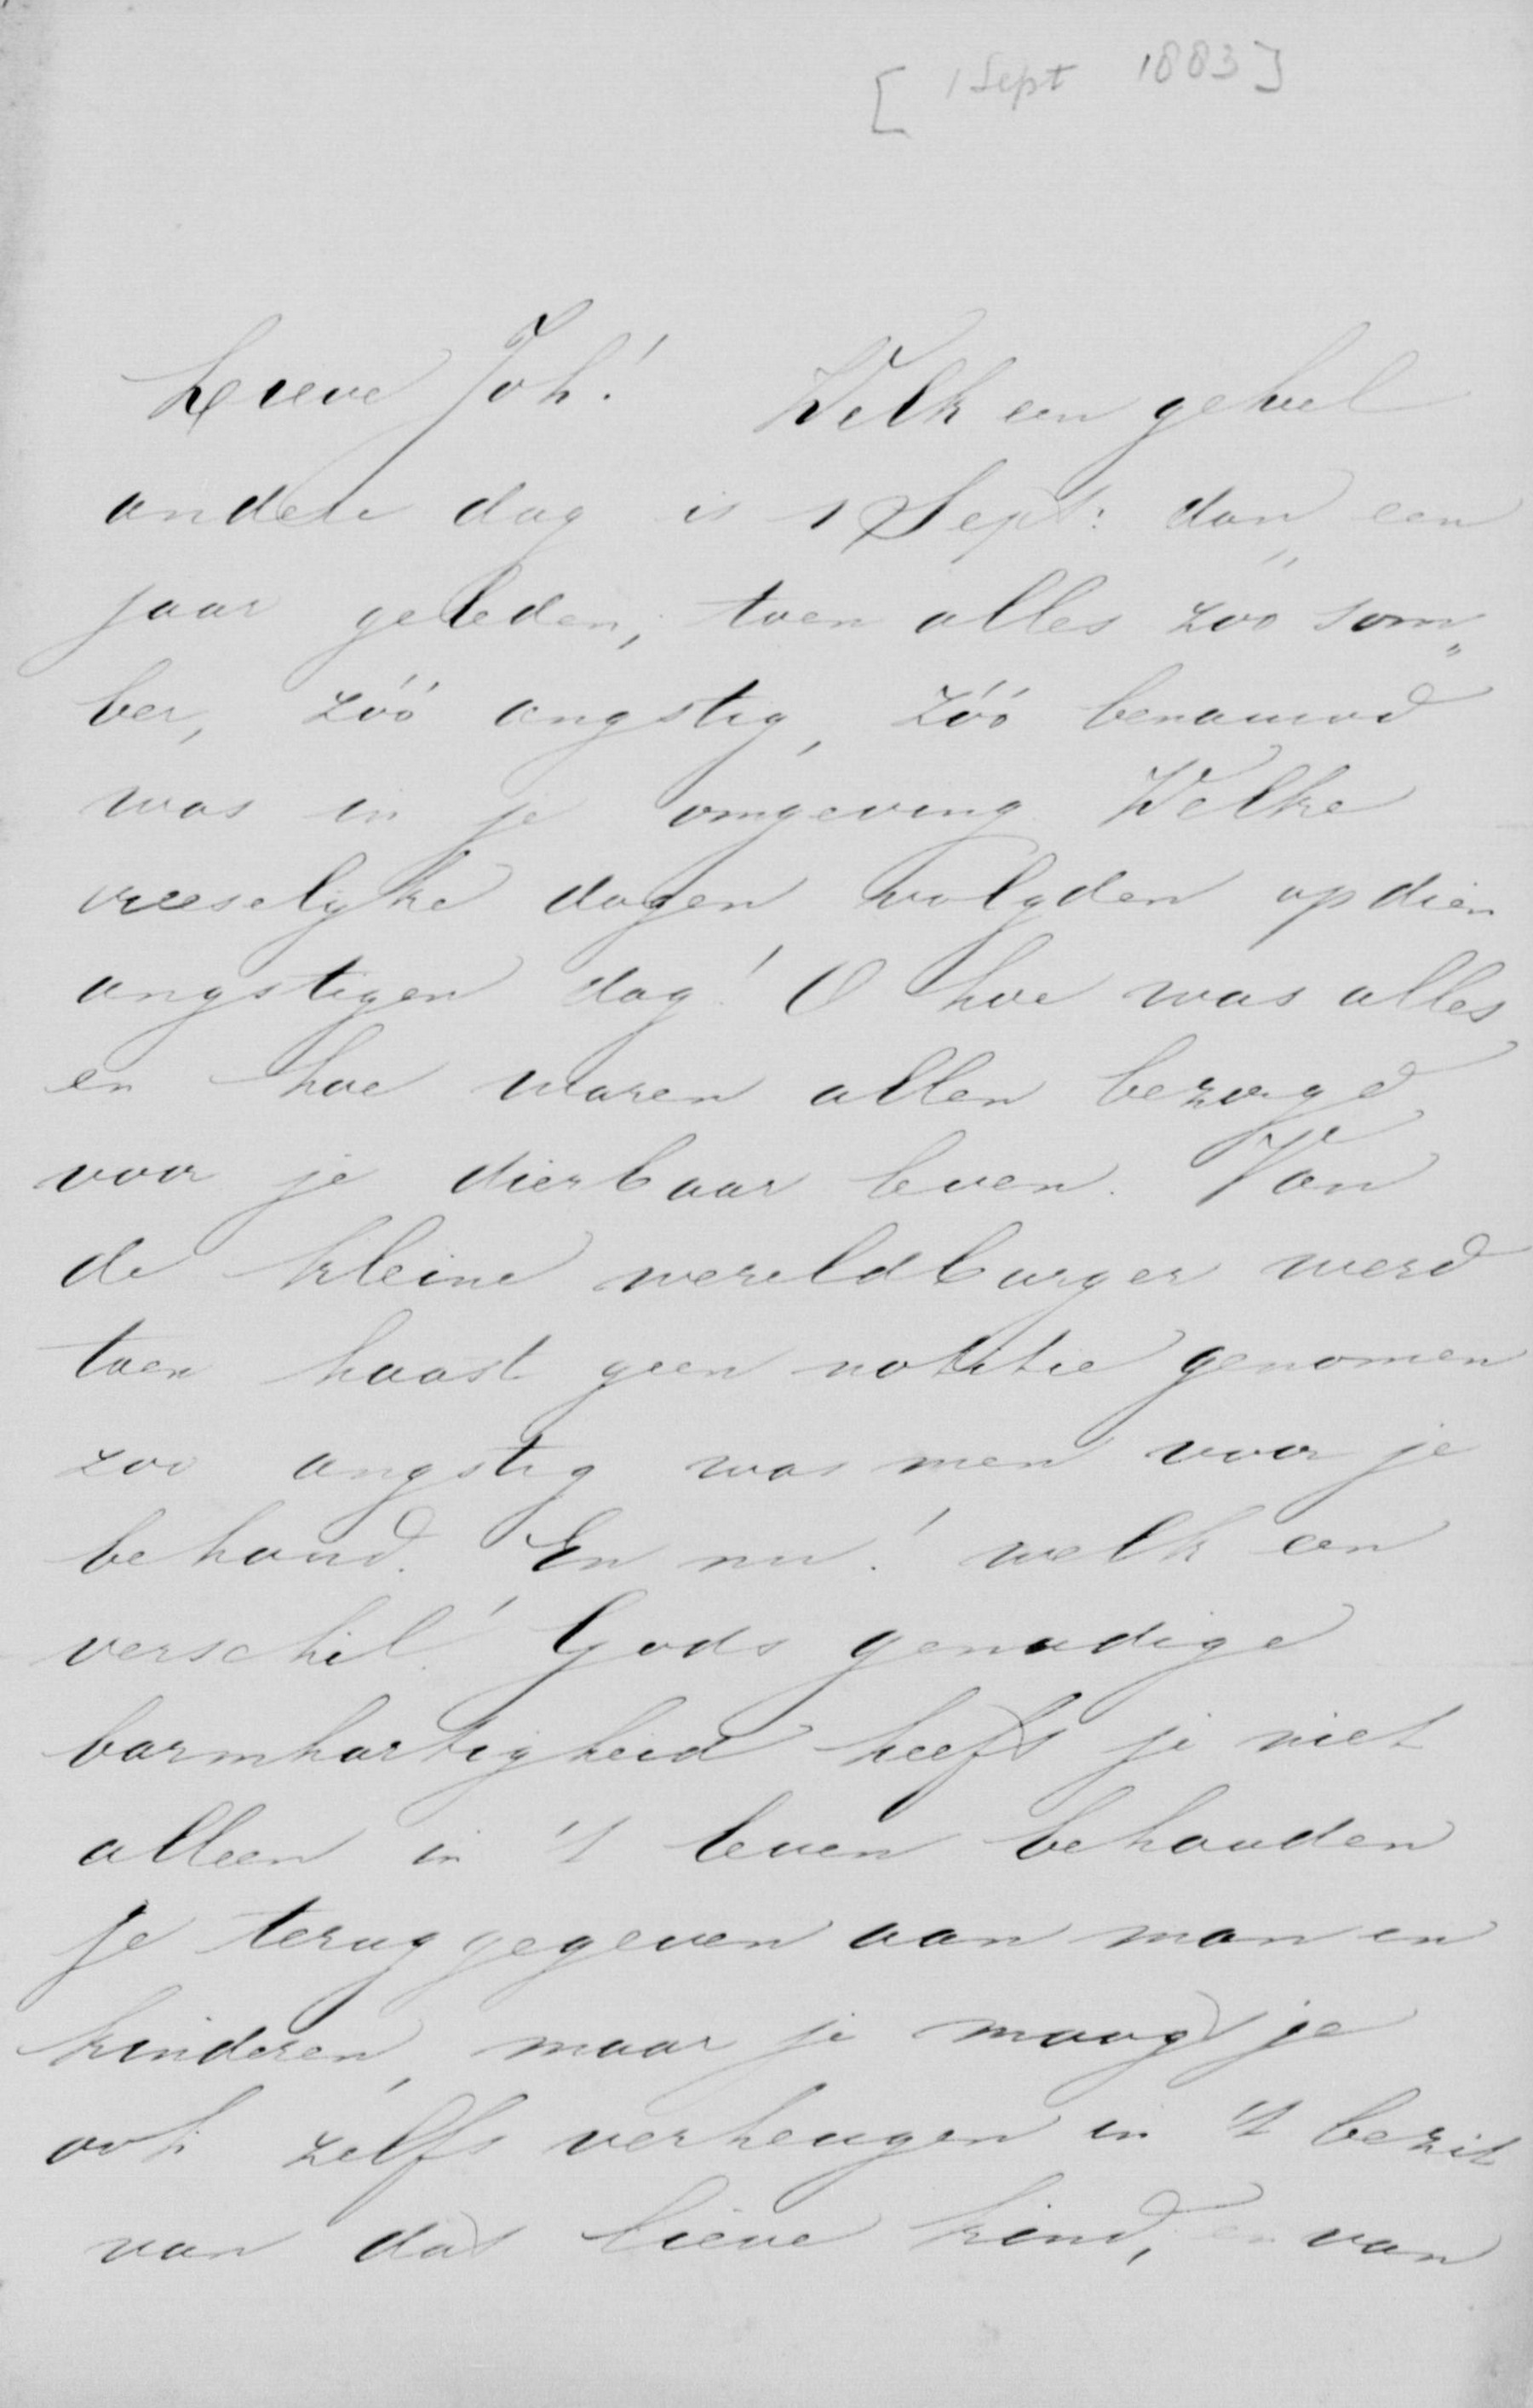 [ 1 Sept 1883 ]
Lieve Joh! Welk een geheel
andere dag is 1 Sept: dan een
jaar geleden, toen alles zoo som„
ber, zóó angstig, zóó benauwd
was in je omgeving. Welke
vreeselyke dagen volgden op dien
angstigen dag! O hoe was alles
en hoe waren allen bezorgd
voor je dierbaar leven. Van
de kleine wereldburger werd
toen haast geen notitie genomen
zoo angstig was men voor je
behoud. En nu! welk een
verschil! Gods genadige
barmhartigheid heeft je niet
alleen in 't leven behouden
je teruggegeven aan man en
kinderen, maar je moogt je
ook zelfs verheugen in 't bezit
van dat lieve kind, en van